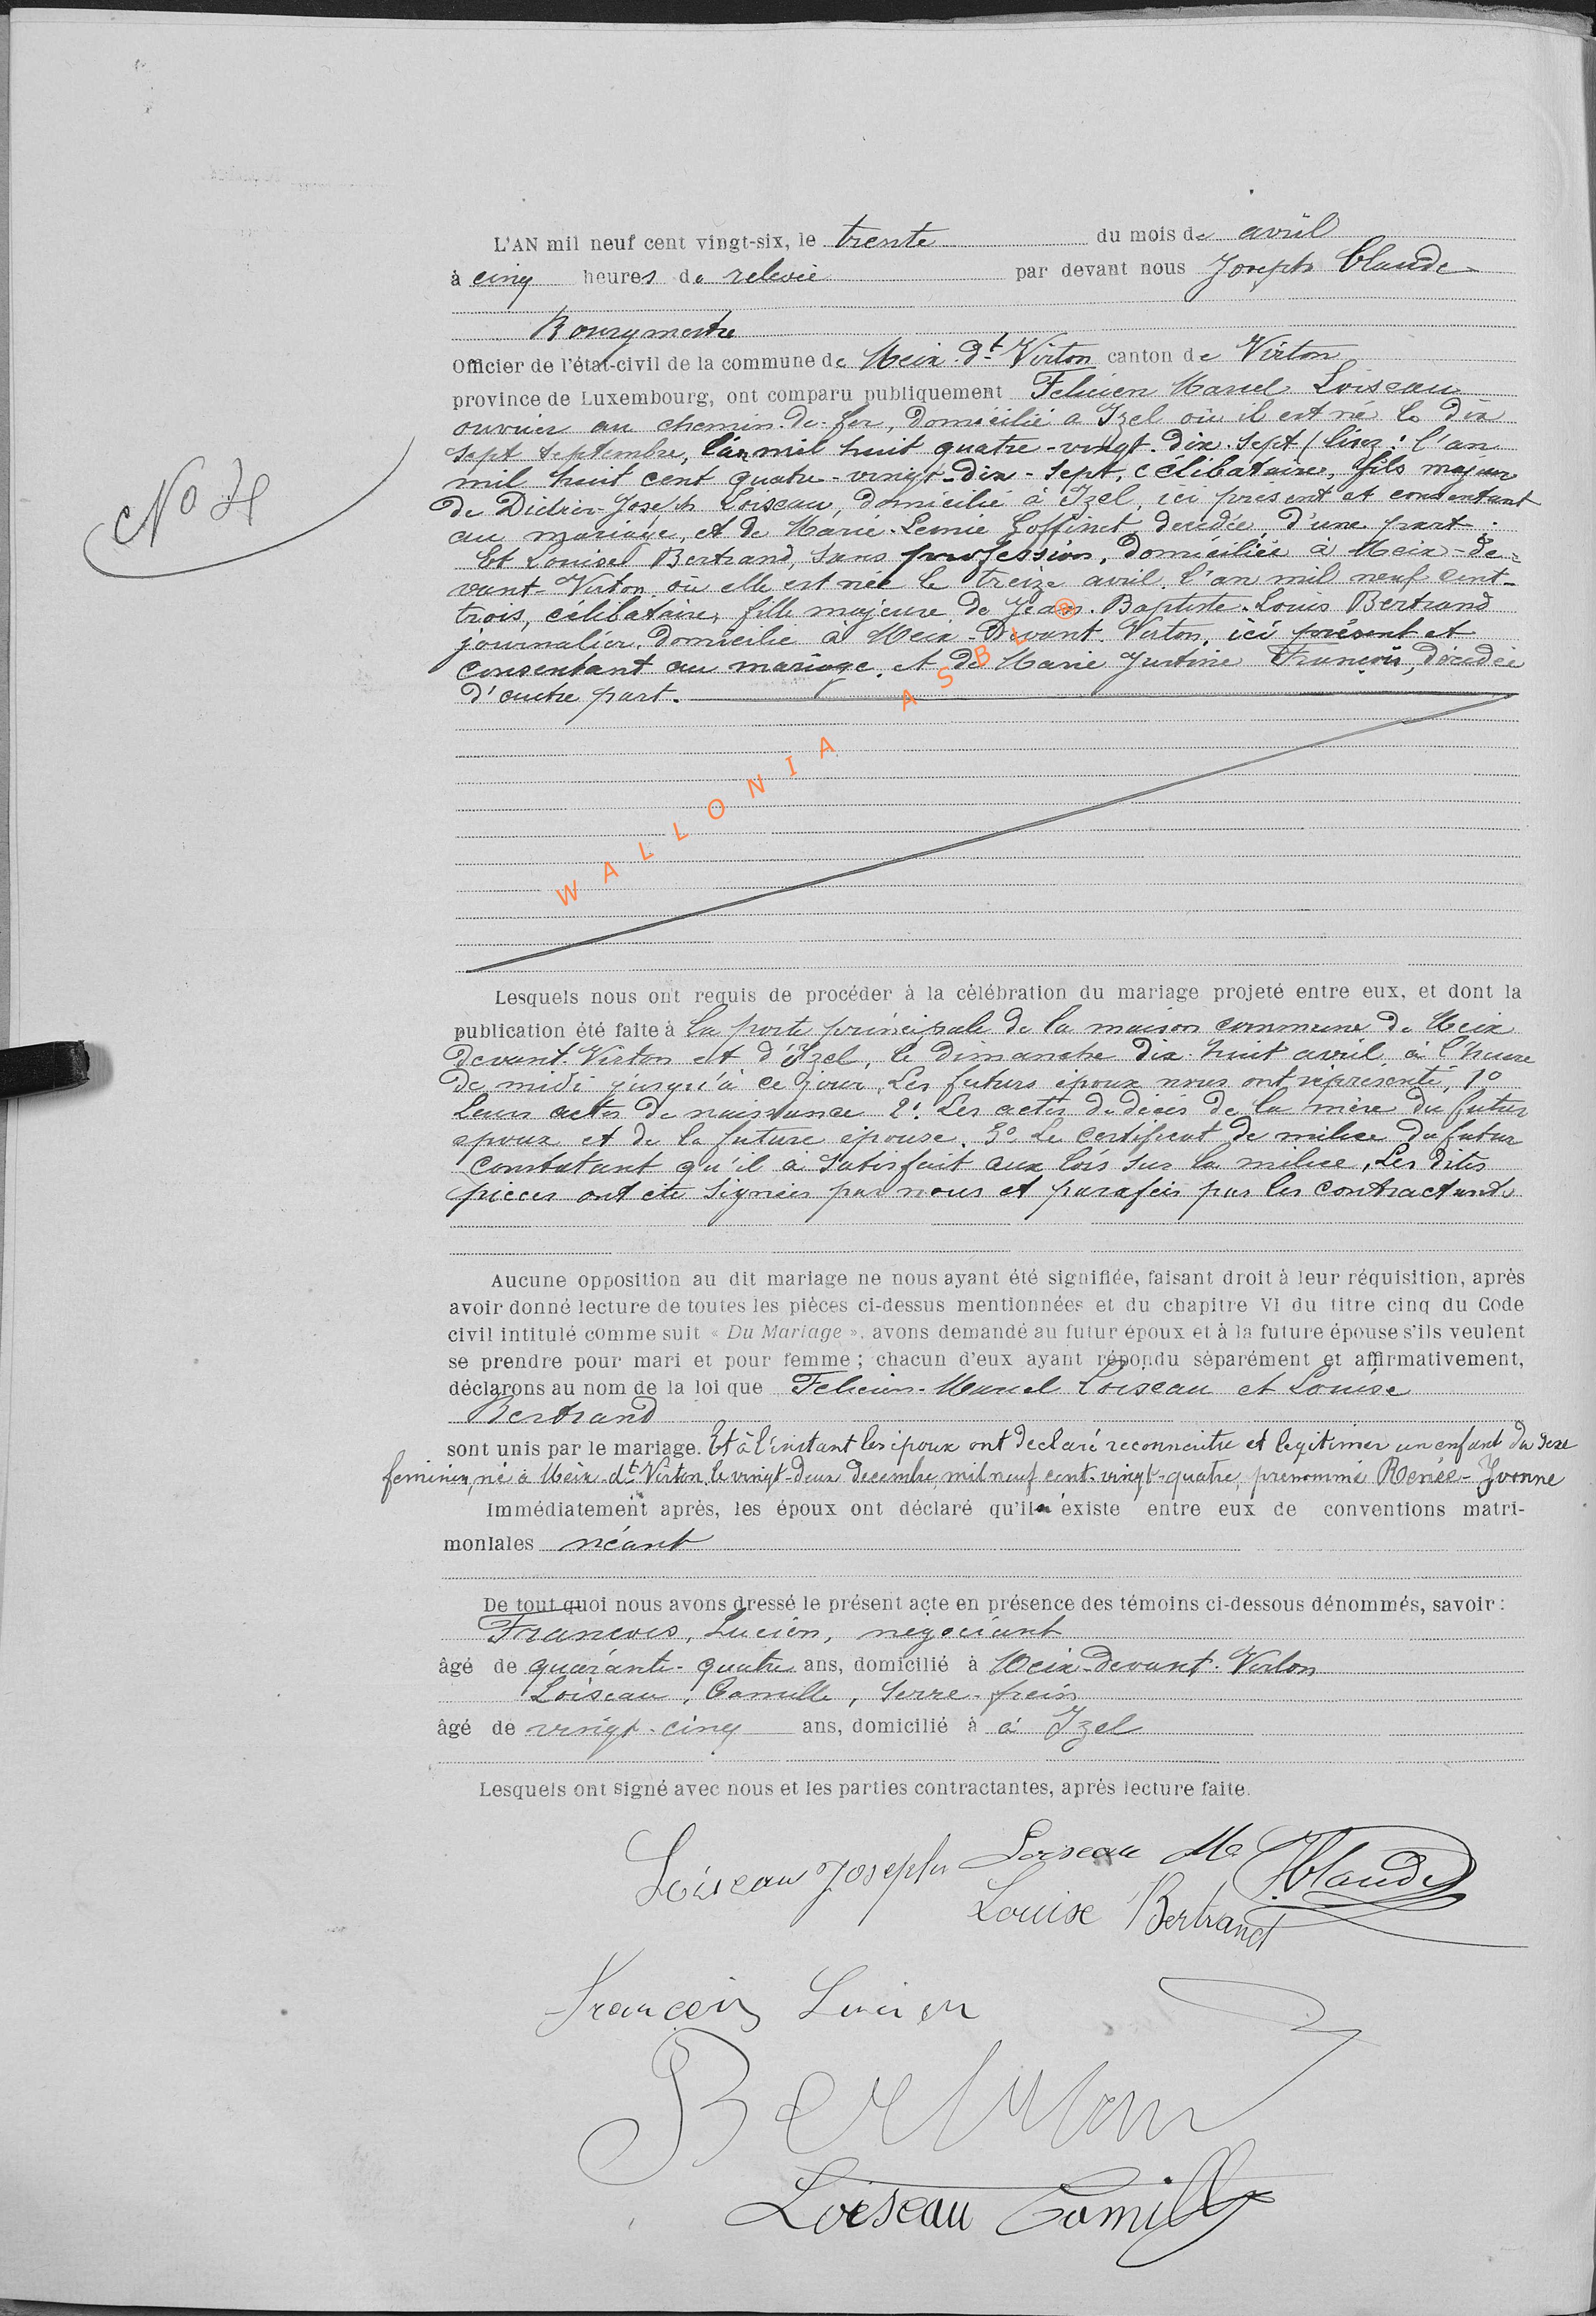 L'AN mil neuf cent vingt-six, le trente du mois de avril
à cinq heures de relevée par devant nous Joseph Claude
Bourgmestre
Officier de l'état-civil de la commune de Meix-dt-Virton canton de Virton
province de Luxembourg, ont comparu publiquement Felicien Marcel Loiseau
ouvrier au chemin-de-fer, domicilié a Izel où il est né le dix
sept septembre, l'an mil huit quatre-vingt-dix-sept (lisez: l'an
mil huit cent quatre-vingt-dix-sept, célibataire, fils majeur
No 4
de Didier-Joseph Loiseau, domicilié à Izel, ici présent et consentant
au mariage, et de Marie Goffinet décédée, d'une part.
Et Louise Bertrand, sans profession, domiciliée à Meix-de-
vant-Virton où elle est née le treize avril l'an mil neuf cent-
trois, célibataire, fille majeure de Jean-Baptiste-Louis Bertrand
journalier, domicilie à Meix-Devant-Virton, ici présent et
consentant au mariage, et de Marie Justine François, décédée
d'autre part.
WALLONIA ASBL ®
Lesquels nous ont requis de procéder à la célébration du mariage projeté entre eux, et dont la
publication été faite à la porte principale de la maison commune de Meix
devant-Virton et d'Izel, le dimanche dix-huit avril à l'heure
de midi jusqu'à ce jour. Les futurs époux nous ont représenté, 1o
Leurs actes de naissance 2o Les actes de décès de la mère du futur
epoux et de la future épouse. 3o Le certificat de milice du futur
constatant qu'il a satisfait aux lois sur la milice. Les dites
pieces ont été signées par nous et parafées par les contractants
Aucune opposition au dit mariage ne nous ayant été signifiée, faisant droit à leur réquisition, après
avoir donné lecture de toutes les pièces ci-dessus mentionnées et du chapitre VI du titre cinq du Code
civil intitulé comme suit « Du Mariage », avons demandé au futur époux et à la future épouse s'ils veulent
se prendre pour mari et pour femme ; chacun d'eux ayant répondu séparément et affirmativement,
déclarons au nom de la loi que Felicien-Marcel Loiseau et Louise
Bertrand
sont unis par le mariage. Et à l'instant les époux ont declaré reconnaitre et legitimer un enfant du sexe
feminin, né à Meix-dt-Virton, le vingt-deux decembre, mil neuf cent-vingt-quatre, prénommé Renée-Yvonne
Immédiatement après, les époux ont déclaré qu'il n'existe entre eux de conventions matri-
moniales néant
De tout quoi nous avons dressé le présent acte en présence des témoins ci-dessous dénommés, savoir :
François, Lucien, négociant
âgé de quarante-quatre ans, domicilié à Meix-devant-Virton
Loiseau, Camille, serre-frein
âgé de vingt-cinq ans, domicilié à à Izel
Lesquels ont signé avec nous et les parties contractantes, après lecture faite.
Loiseau Joseph Loiseau Ma J Claude
Louise Bertrand
François Lucien
Loiseau Camille